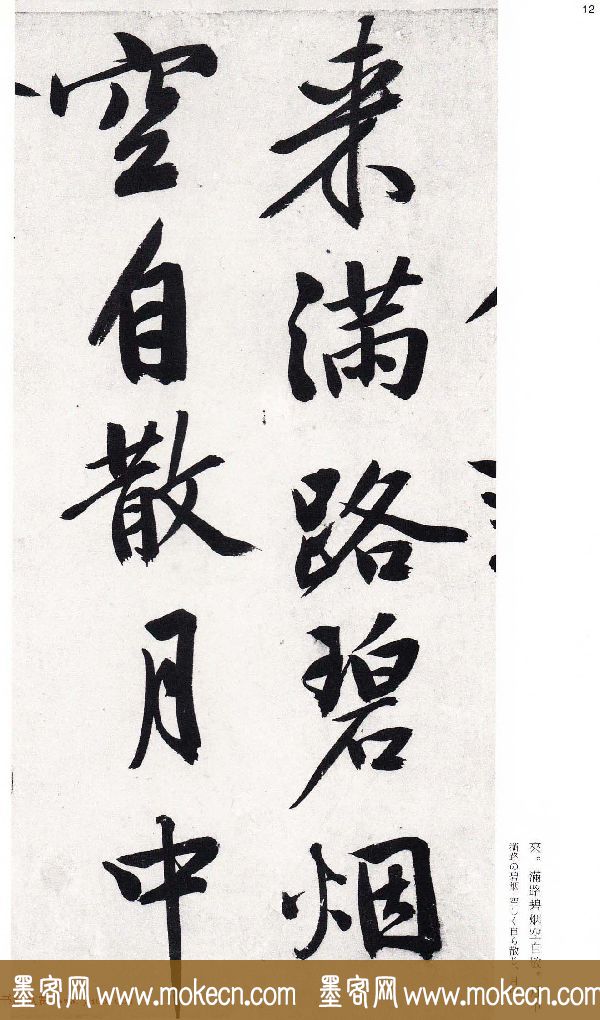 12
来满路碧烟
空自散月中
来。满路碧烟空自散。
满路の碧烟 空しく自ら散じ、月
墨客网 www.mokecn.com 墨客网 www.mokecn.com